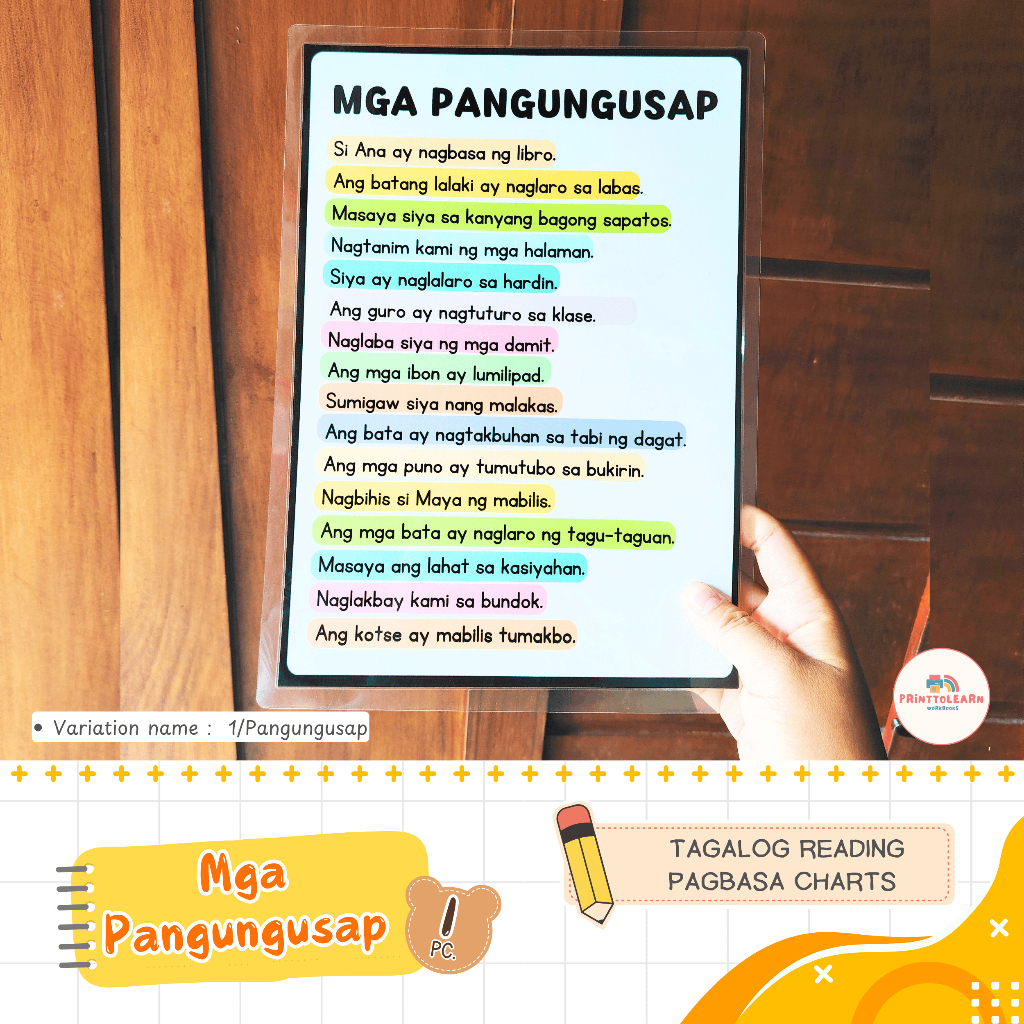 MGA PANGUNGUSAP
Si Ana ay nagbasa ng libro.
Ang batang lalaki ay naglaro sa labas.
Masaya siya sa kanyang bagong sapatos.
Nagtanim kami ng mga halaman.
Siya ay naglalaro sa hardin.
Ang guro ay nagtuturo sa klase.
Naglaba siya ng mga damit.
Ang mga ibon ay lumilipad.
Sumigaw siya nang malakas.
Ang bata ay nagtakbuhan sa tabi ng dagat.
Ang mga puno ay tumutubo sa bukirin.
Nagbihis si Maya ng mabilis.
Ang mga bata ay naglaro ng tagu-taguan.
Masaya ang lahat sa kasiyahan.
Naglakbay kami sa bundok.
Ang kotse ay mabilis tumakbo.
PRINTTOLEARN
WORKBOOKS
• Variation name : 1/Pangungusap
Mga
Pangungusap
1
PC.
TAGALOG READING
PAGBASA CHARTS